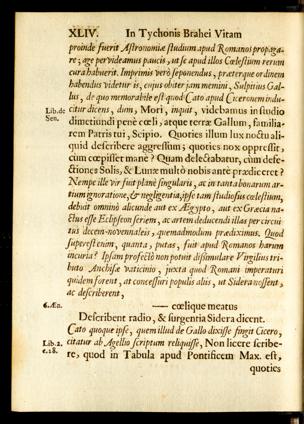 XLIV. In Tychonis Brahei Vitam
proinde fuerit Astronomiæ studium apud Romanos propaga-
re; age pervideamus paucis, ut se apud illos Cœlestium rerum
cura habuerit. Imprimis verò seponendus, præterque ordinem
habendus videtur is, cujus obiter jam memini, Sulpitius Gal-
lus, de quo memorabile est quod Cato apud Ciceronem indu-
citur dicens, dum, Mori, inquit, videbamus in studio
Lib. de
Sen.
dimetiendi penè cœli, atque terræ Gallum, familia-
rem Patris tui, Scipio. Quoties illum lux noctu ali-
quid describere aggressum; quoties nox oppressit,
cùm cœpisset manè? Quam delectabatur, cùm defe-
ctiones Solis, & Lunæ multò nobis antè prædiceret?
Nempe ille vir fuit planè singularis, ac in tanta bonarum ar-
tium ignoratione, & negligentia, ipse tam studiosus cœlestium,
debuit omninò aliunde aut ex Ægypto, aut ex Græcia na-
ctus esse Eclipseon seriem, ac artem deducendi illas per circui-
tus decem-novennaleis, quemadmodum prædiximus. Quod
superest enim, quanta, putas, fuit apud Romanos harum
incuria? Ipsam profectò non potuit dissimulare Virgilius tri-
buto Anchisæ vaticinio, juxta quod Romani imperaturi
quidem forent, at concessuri populis aliis, ut Sidera nossent,
ac describerent,
6. Æn.
— cœlique meatus
Describent radio, & surgentia Sidera dicent.
Cato quoque ipse, quem illud de Gallo dixisse fingit Cicero,
Lib. 2.
c. 28.
citatur ab Agellio scriptum reliquisse, Non licere scribe-
re, quod in Tabula apud Pontificem Max. est,
quoties